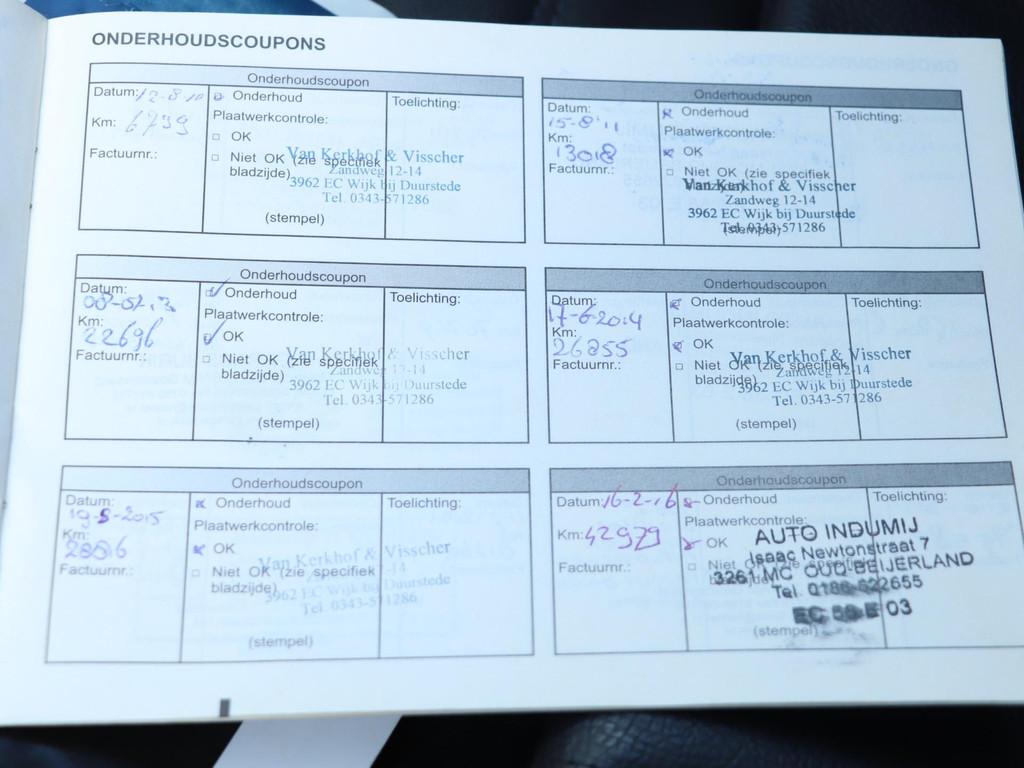 ONDERHOUDSCOUPONS
Onderhoudscoupon
Datum: 12-8-10
Onderhoud
Toelichting:
Km: 6739
Plaatwerkcontrole:
OK
Factuurnr.:
Niet OK (zie specifiek
bladzijde)
Van Kerkhof & Visscher
Zandweg 12-14
3962 EC Wijk bij Duurstede
Tel. 0343-571286
(stempel)
Onderhoudscoupon
Datum:
15-8'11
Onderhoud
Toelichting:
Km:
13018
Plaatwerkcontrole:
OK
Factuurnr.:
Niet OK (zie specifiek
bladzijde)
Van Kerkhof & Visscher
Zandweg 12-14
3962 EC Wijk bij Duurstede
Tel. 0343-571286
(stempel)
Onderhoudscoupon
Datum:
Onderhoud
Toelichting:
Km:
22696
Plaatwerkcontrole:
OK
Factuurnr.:
Niet OK (zie specifiek
bladzijde)
Van Kerkhof & Visscher
Zandweg 12-14
3962 EC Wijk bij Duurstede
Tel. 0343-571286
(stempel)
Onderhoudscoupon
Datum:
17-6-2014
Onderhoud
Toelichting:
Km:
26855
Plaatwerkcontrole:
OK
Factuurnr.:
Niet OK (zie specifiek
bladzijde)
Van Kerkhof & Visscher
Zandweg 12-14
3962 EC Wijk bij Duurstede
Tel. 0343-571286
(stempel)
Onderhoudscoupon
Datum:
19-5-2015
Onderhoud
Toelichting:
Km:
Plaatwerkcontrole:
OK
Factuurnr.:
Niet OK (zie specifiek
bladzijde)
Van Kerkhof & Visscher
3962 EC Wijk bij Duurstede
Tel. 0343-571286
(stempel)
Onderhoudscoupon
Datum: 16-2-16
Onderhoud
Toelichting:
Km: 42979
Plaatwerkcontrole:
OK
Factuurnr.:
Niet OK (zie specifiek
AUTO INDUMIJ
Isaac Newtonstraat 7
3261 MC OUD-BEIJERLAND
Tel. 0186-622655
(stempel)